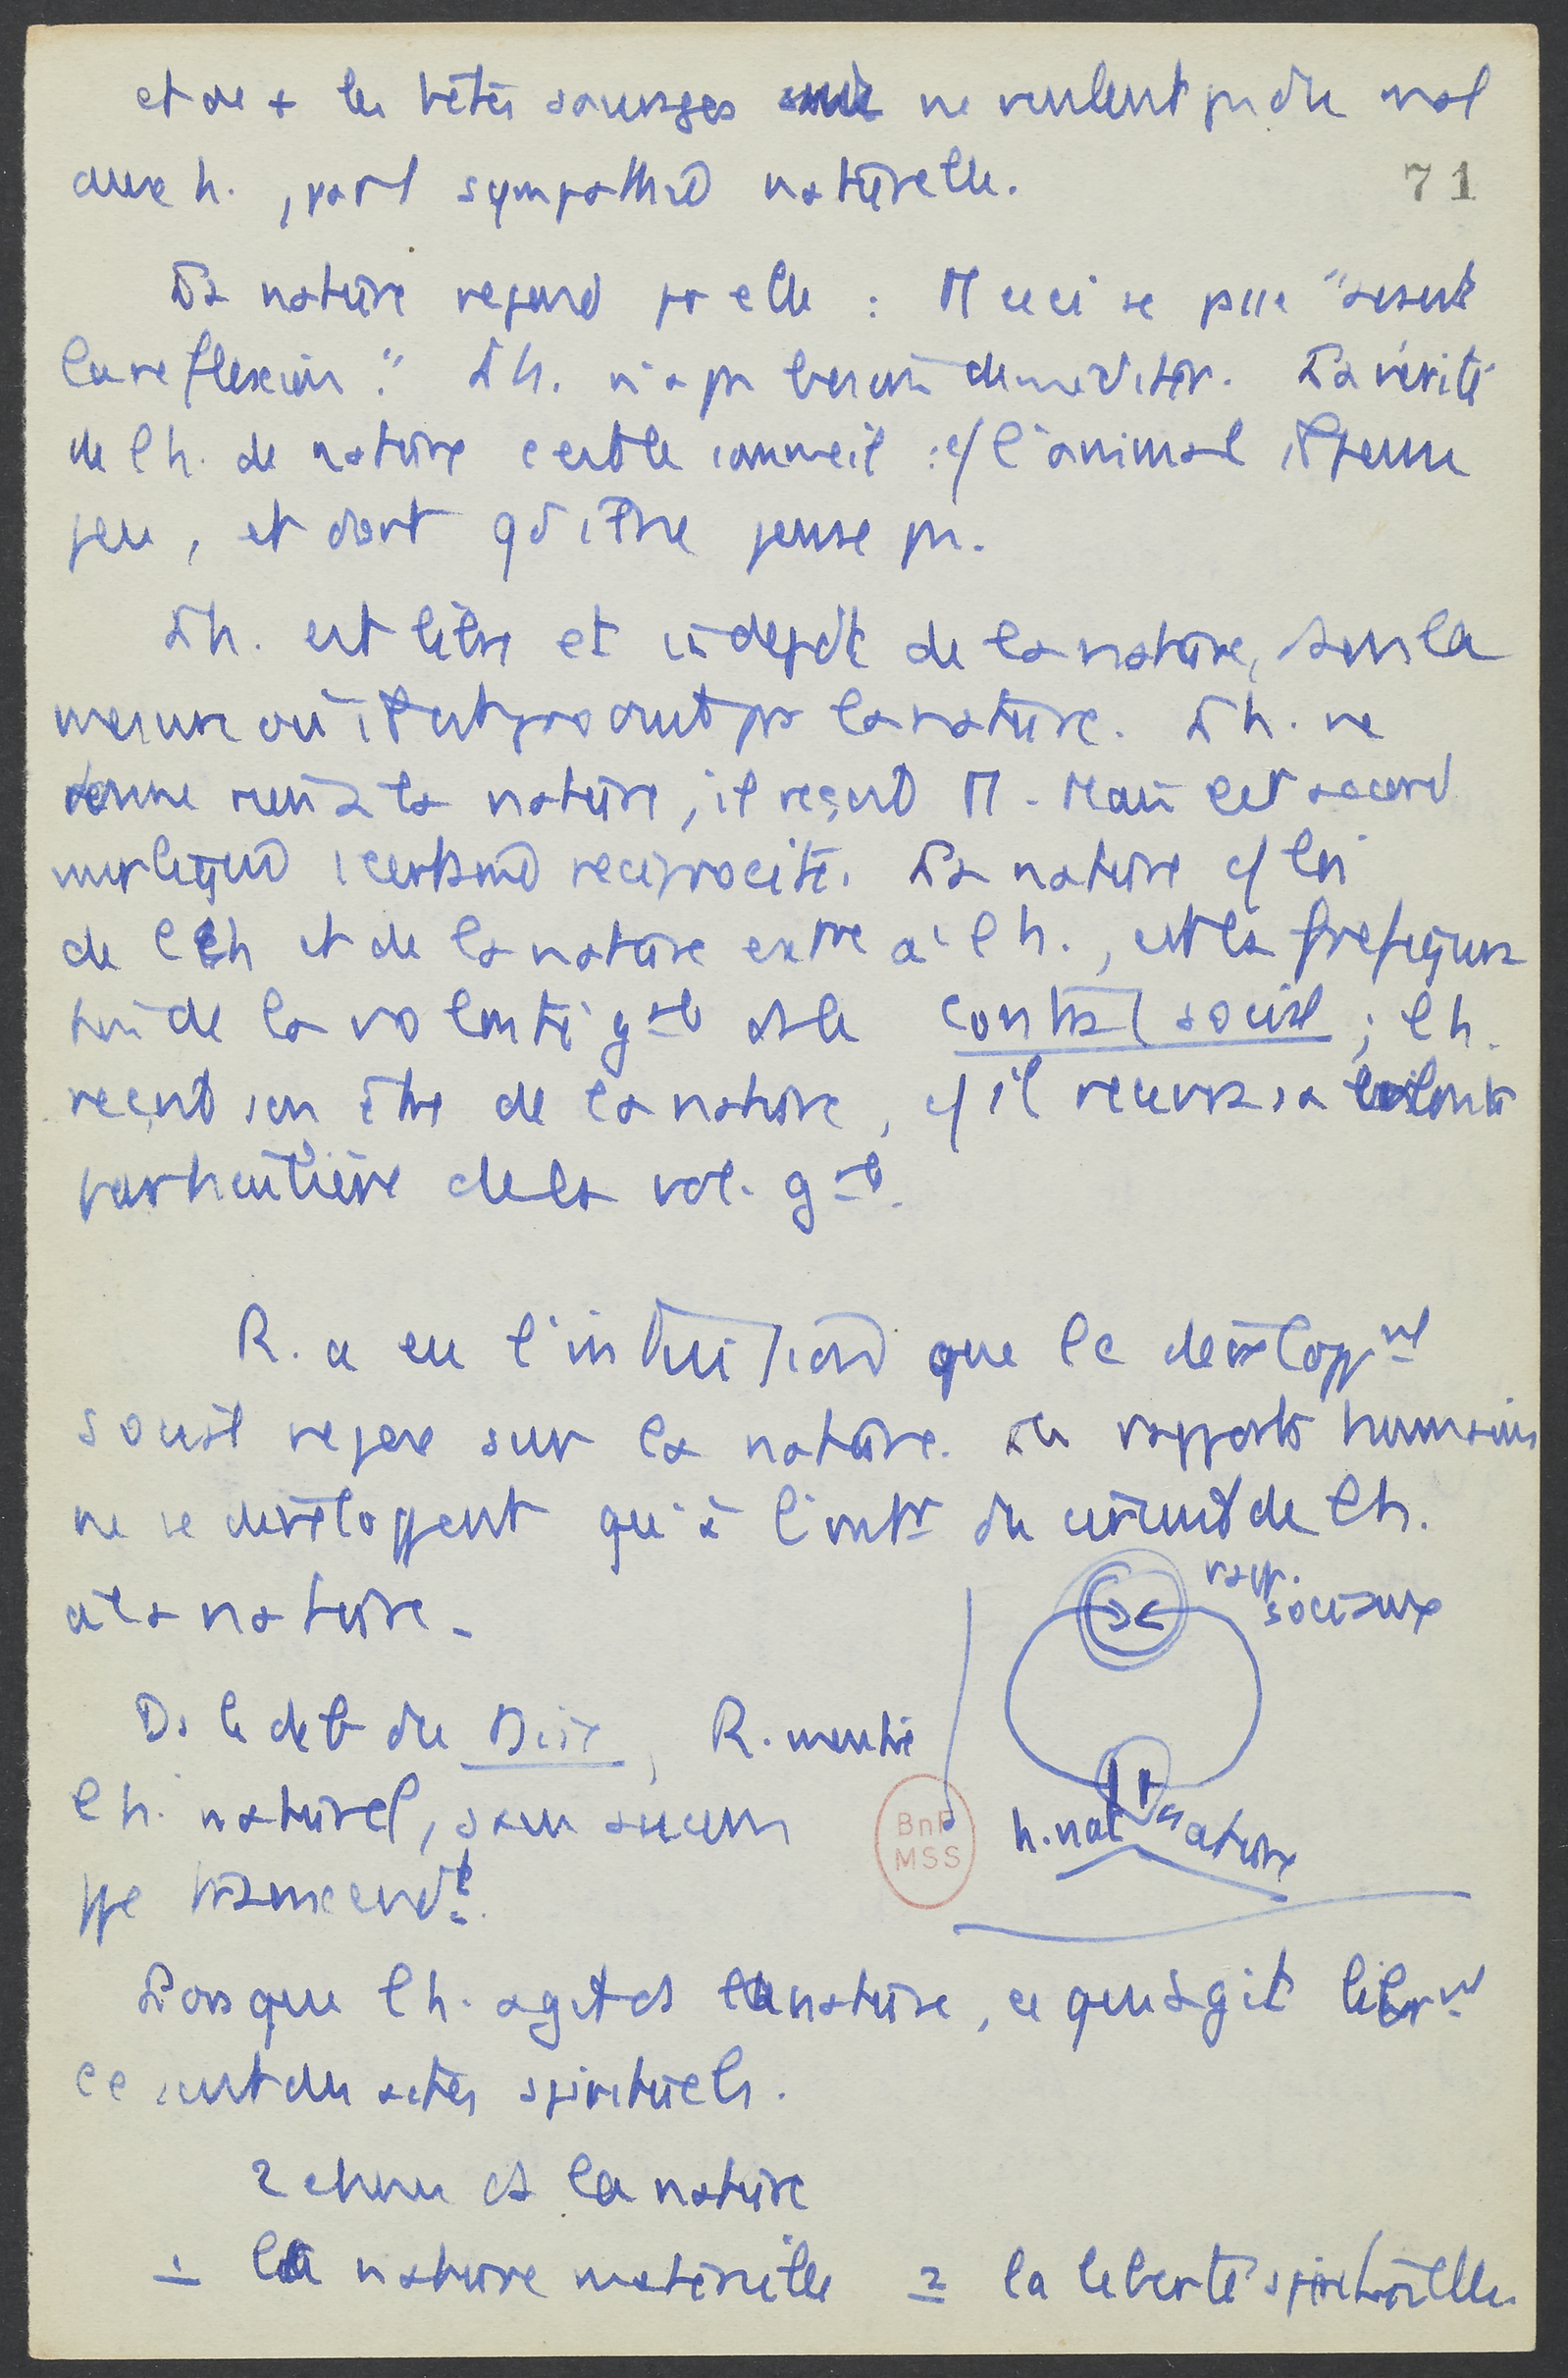 et de + les bêtes sauvages ne veulent pas du mal
aux h., par sympathie naturelle.
71
La nature répond pr elle : M ceci se passe "avant
la réflexion". L'h. n'a pas besoin de méditer. La vérité
de l'h. de nature c'est le sommeil : c/ l'animal, il pense
peu, et dort qd il ne pense pas.
L'h. est libre et indépdt de la nature, dans la
mesure où il est produit par la nature. L'h. ne
donne rien à la nature, il reçoit tt. Mais cet accord
sur lequel
réciprocité. La nature c/ loi
de l'h et de la nature extre à l'h., est la préfigura
tion de la volonté gale ds le Contrat social ; l'h.
reçoit son être de la nature, c/ il recevra sa volonté
particulière de la vol. gale.
R. a eu l'intuition que le dévelopmt
social repose sur la nature. Les rapports humains
ne se développent qu'à l'intr du circuit de l'h.
à la nature.
rapp.
sociaux
h. nat nature
Ds le déb du Disc, R. montre
l'h. naturel, sans aucun
ppe transcendt.
BnF
MSS
Lorsque l'h. agit ds la nature, ce qui agit librmt
ce sont des actes spirituels.
2 choses ds la nature
1 la nature matérielle 2 la liberté spirituelle.